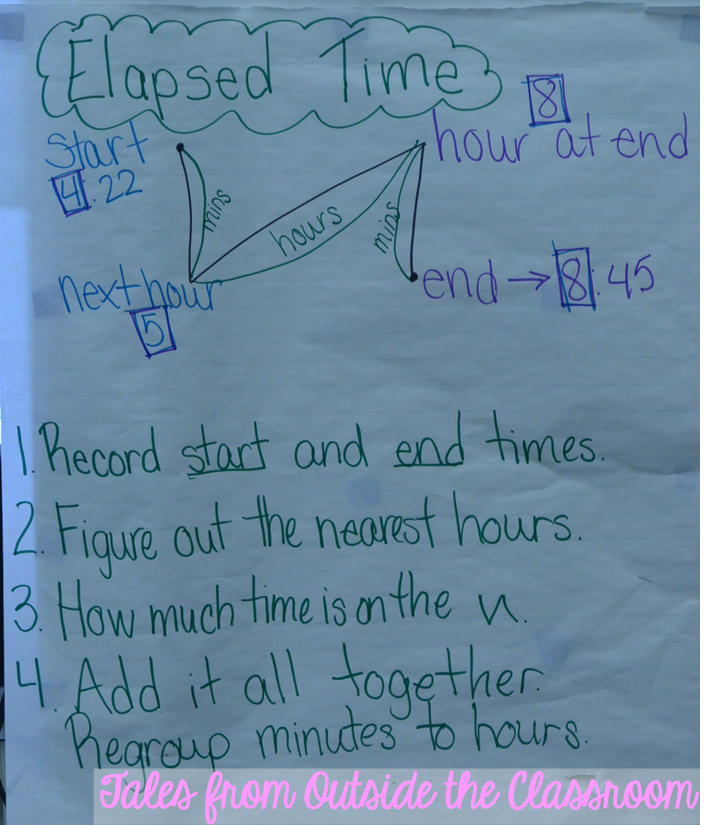 Elapsed Time
8
Start
hour at end
4:22
mins
hours
mins
next hour
end → 8:45
5
1. Record start and end times.
2. Figure out the nearest hours.
3. How much time is on the
4. Add it all together.
Regroup minutes to hours.
Tales from Outside the Classroom